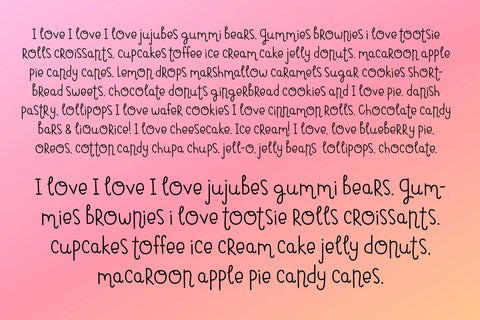 I love I love I love jujubes gummi bears. Gummies brownies i love tootsie
rolls croissants. Cupcakes toffee ice cream cake jelly donuts. Macaroon apple
pie candy canes. Lemon drops marshmallow caramels sugar cookies short-
bread sweets. Chocolate donuts gingerbread cookies and I love pie. Danish
pastry. Lollipops I love wafer cookies I love cinnamon rolls. Chocolate candy
bars & liquorice! I love cheesecake. Ice cream! I love, love blueberry pie,
oreos, cotton candy chupa chups, jell-o, jelly beans lollipops, chocolate.
I love I love I love jujubes gummi bears. Gum-
mies brownies i love tootsie rolls croissants.
Cupcakes toffee ice cream cake jelly donuts.
Macaroon apple pie candy canes.